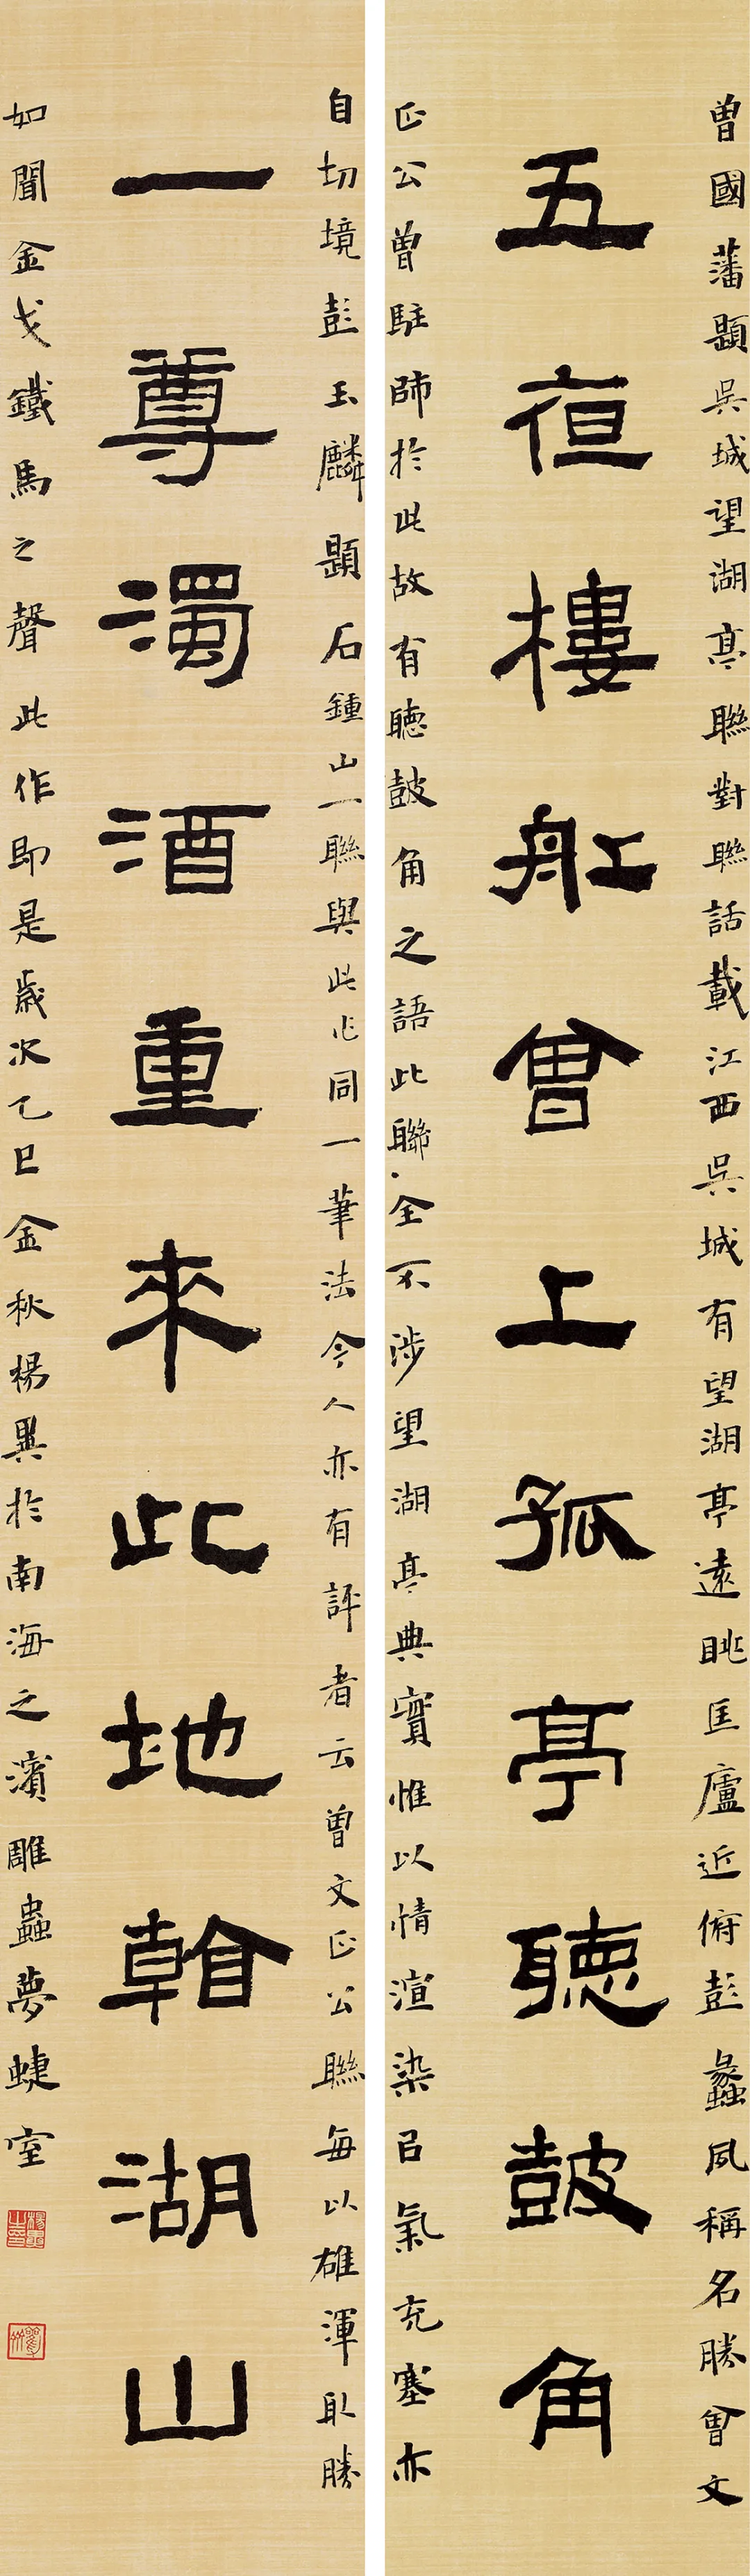 曾國藩題吳城望湖亭聯對聯話載江西吳城有望湖亭遠眺匡廬近俯彭蠡夙稱名勝曾文
五夜樓船曾上孤亭聽鼓角
正公曾駐師於此故有聽鼓角之語此聯全不涉望湖亭典實惟以情渲染㠯氣充塞亦
自切境彭玉麟題石鍾山一聯與此作同一筆法今人亦有評者云曾文正公聯每以雄渾取勝
一尊濁酒重來此地看湖山
如聞金戈鐵馬之聲此作即是歲次乙巳金秋楊異於南海之濱雕蟲夢蜨室